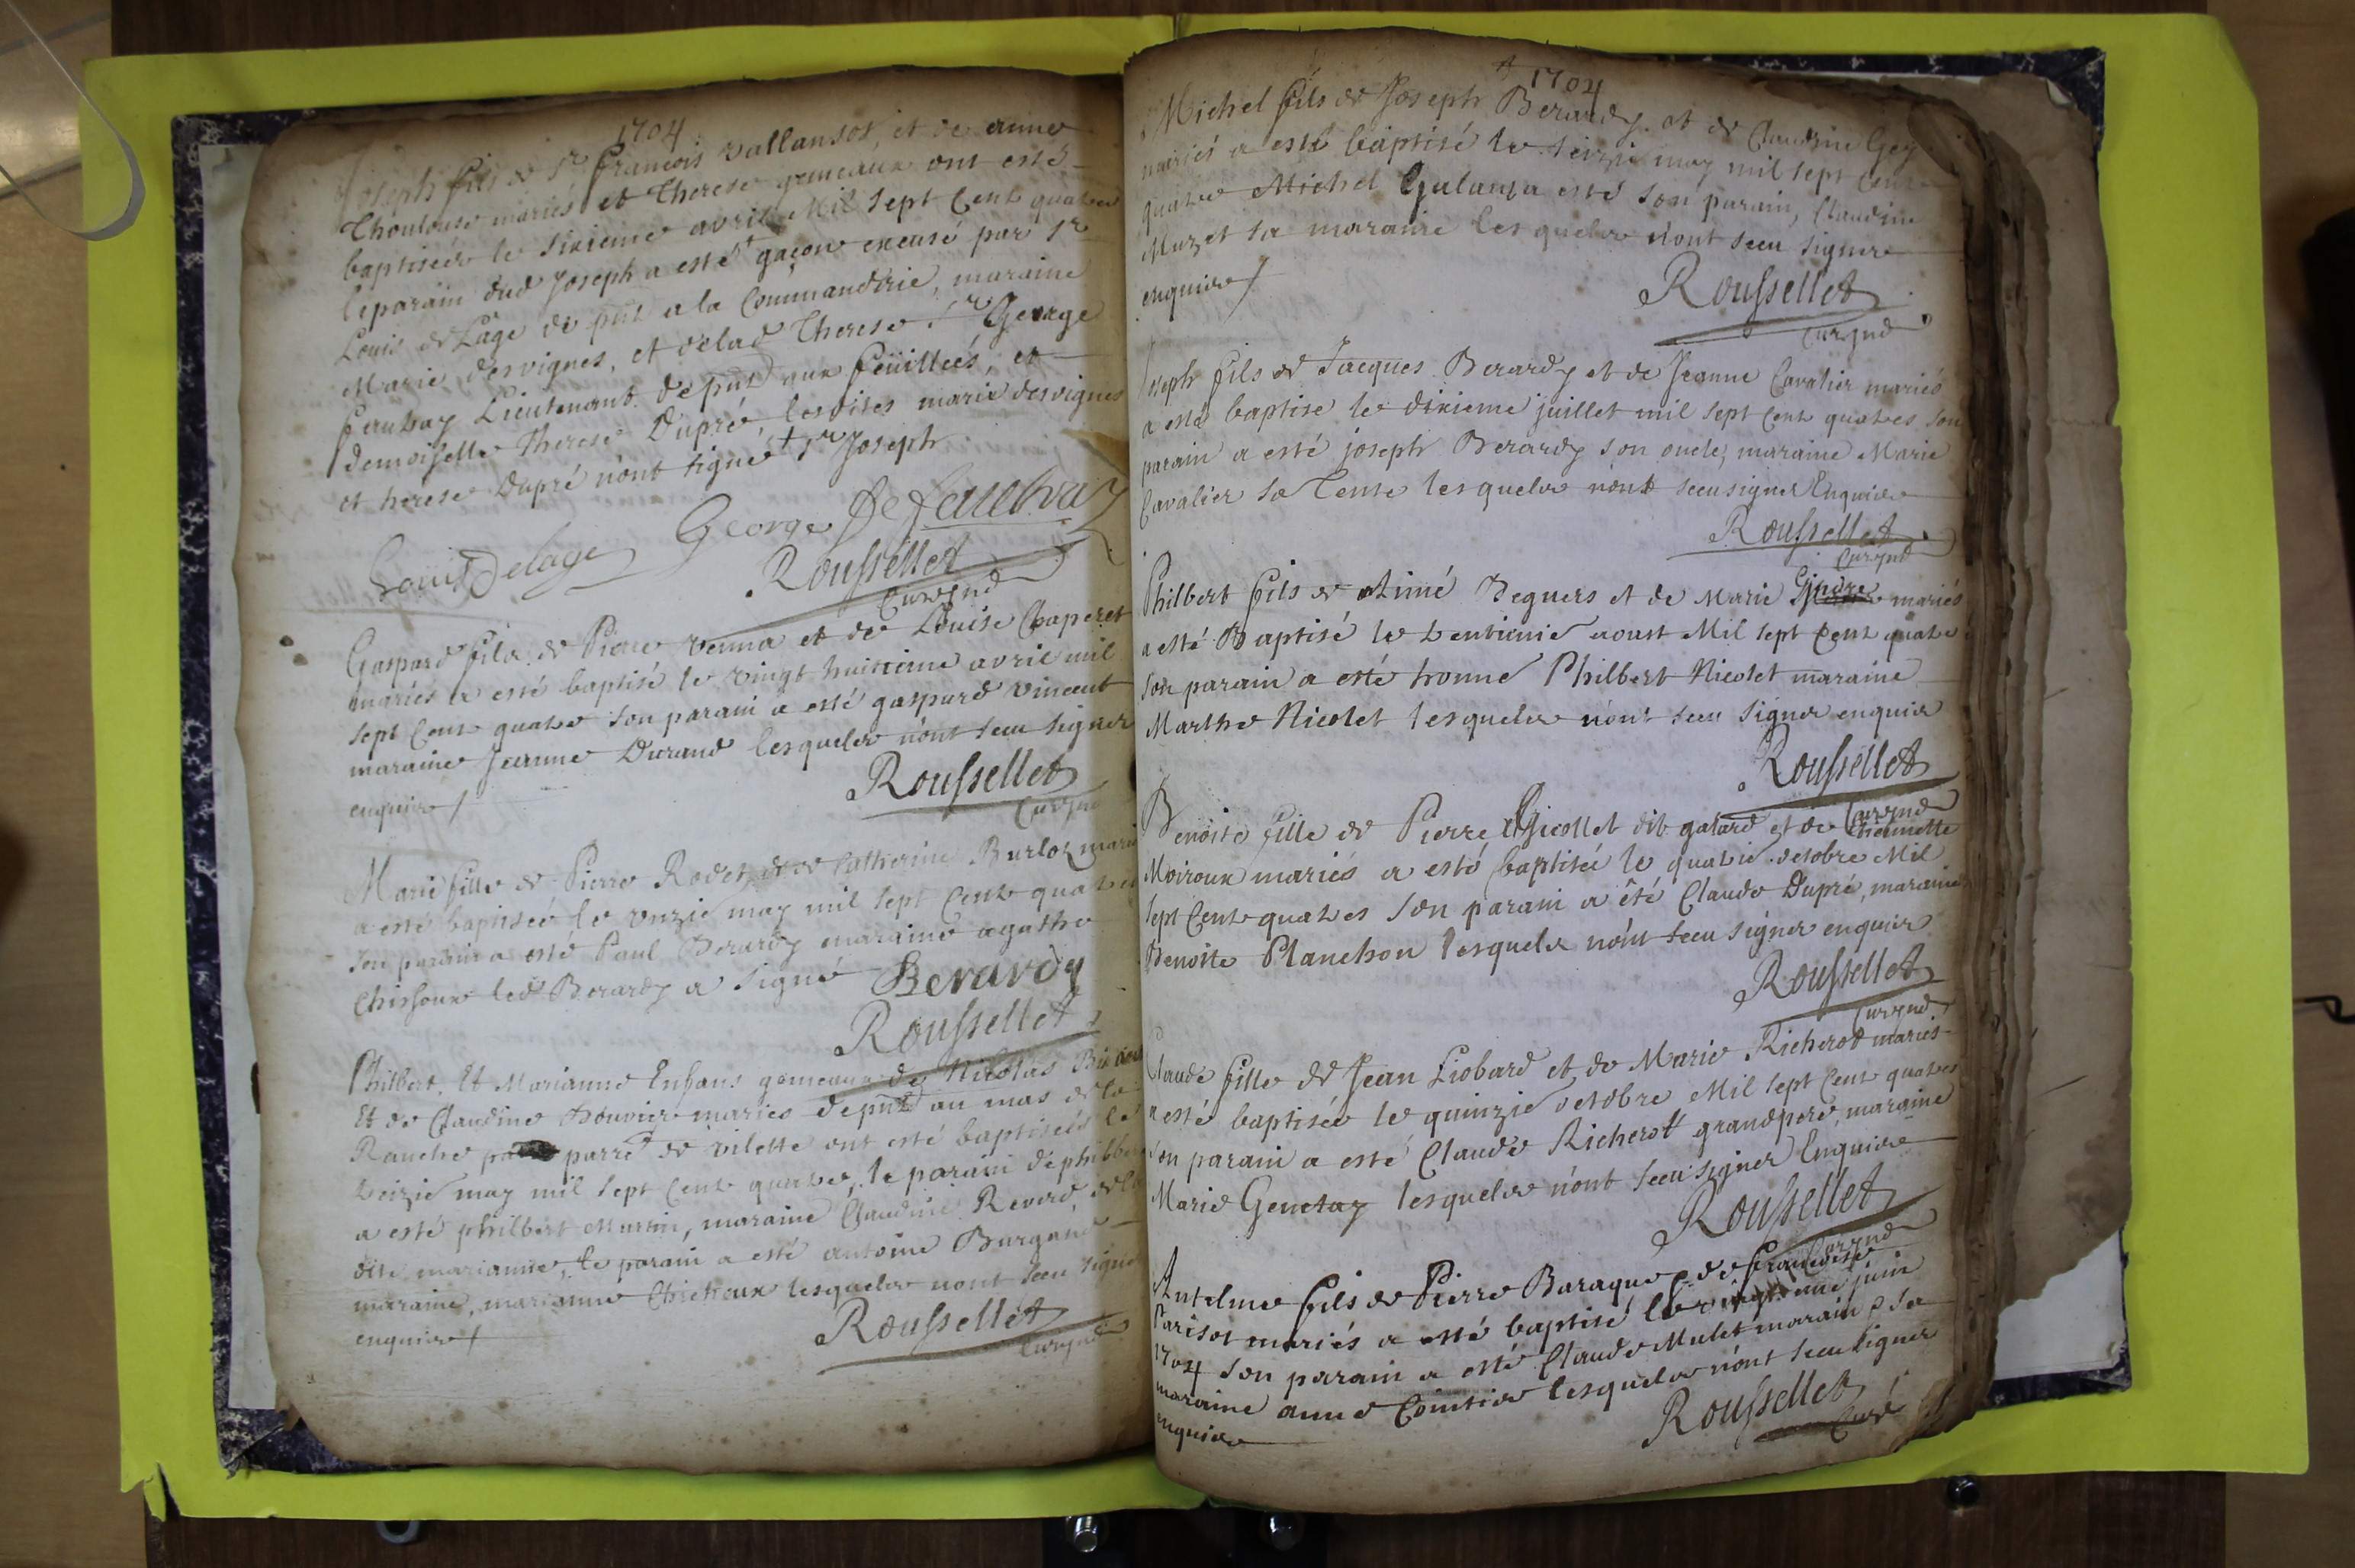 1704
Joseph fils de Sr francois vallansot, et de anne
Thoulouse mariés et Therese gemeaux ont esté
baptisées le sixieme avril Mil sept Cent quatre
le parain dud Joseph a esté + gaçon excusé par Sr
Louis de Lage de pnt a la Commandrie, maraine
Marie desvignes, et de lad Therese Sr George
Lieutenant de pnt aux feüilleés, et
demoiselle Therese Dupré, lesdites marie desvignes
et therese Dupré n'ont signé + Sr Joseph
Louis Delage George De
Roussellet
Gaspard fils de Pierre Venna et de Louise Chaperet
mariés a esté baptisé le vingt huitieme avril mil
sept Cent quatre son parain a esté gaspard vincent
maraine Jeanne Durand lesquels n'ont sceu signer
enquis
Roussellet
Marie fille de Pierre Rodet, et de Catherine Burloz mariés
a esté baptisée le onzie may mil sept Cent quatre
son parain a esté Paul Berardy maraine agathe
Chissoux led Berardy a signé Berardy
Roussellet
Philbert Et Marianne Enfans gemeaux de Nicolas
Et de Claudine Bouvier mariés de pnt au mas de la
Ranche parre de vilette ont esté baptiseés le
treizie may mil sept Cent quatre, le parain de philbert
a esté philbert Martin, maraine Claudine Revord, de la
dite marianne, le parain a esté antoine Burgand
maraine, marianne lesquels nont sceu signé
enquis
Roussellet
1704
Michel fils de Joseph Berardy et de Claudine Gey
mariés a esté baptisé le seizie may mil sept Cent
quatre Michel Gulanza esté son parain, Claudine
Muzet sa maraine lesquels n'ont sceu signer
enquis
Roussellet
Joseph fils de Jacques Berardy et de Jeanne Cavalier mariés
a esté baptisé le dixieme juillet mil sept Cent quatres son
parain a esté joseph Berardy son oncle, maraine Marie
Cavalier sa Tente lesquels n'ont sceu signer Enquis
Roussellet
Philbert fils de Aimé Deguers et de Marie mariés
a esté Baptisé le trentieme aoust Mil sept Cent quatre
son parain a esté honné Philbert Nicolet maraine
Marthe Nicolet lesquels n'ont sceu signer enquis
Roussellet
Benoite fille de Pierre Nicollet dit galard et de
Moiroux mariés a esté baptiseé le quatrie octobre Mil
sept Cent quatres son parain a été Claude Dupré, maraine
Benoite Planchon lesquels n'ont sceu signer enquis
Roussellet
Claude fille de Jean Liobard et de Marie Richerot mariés
a esté baptisée le quinzie octobre Mil sept Cent quatres
son parain a esté Claude Richerott grandpere, maraine
Marie Genetay lesquels n'ont sceu signer Enquis
Roussellet
Antelme fils de Pierre Baraque & de francoise
Parisot mariés a esté baptisé le vingt une juin
1704 son parain a esté Claude Mulet marain & sa
maraine anne Cointier lesquels n'ont sceu signer
enquis
Roussellet
Curé